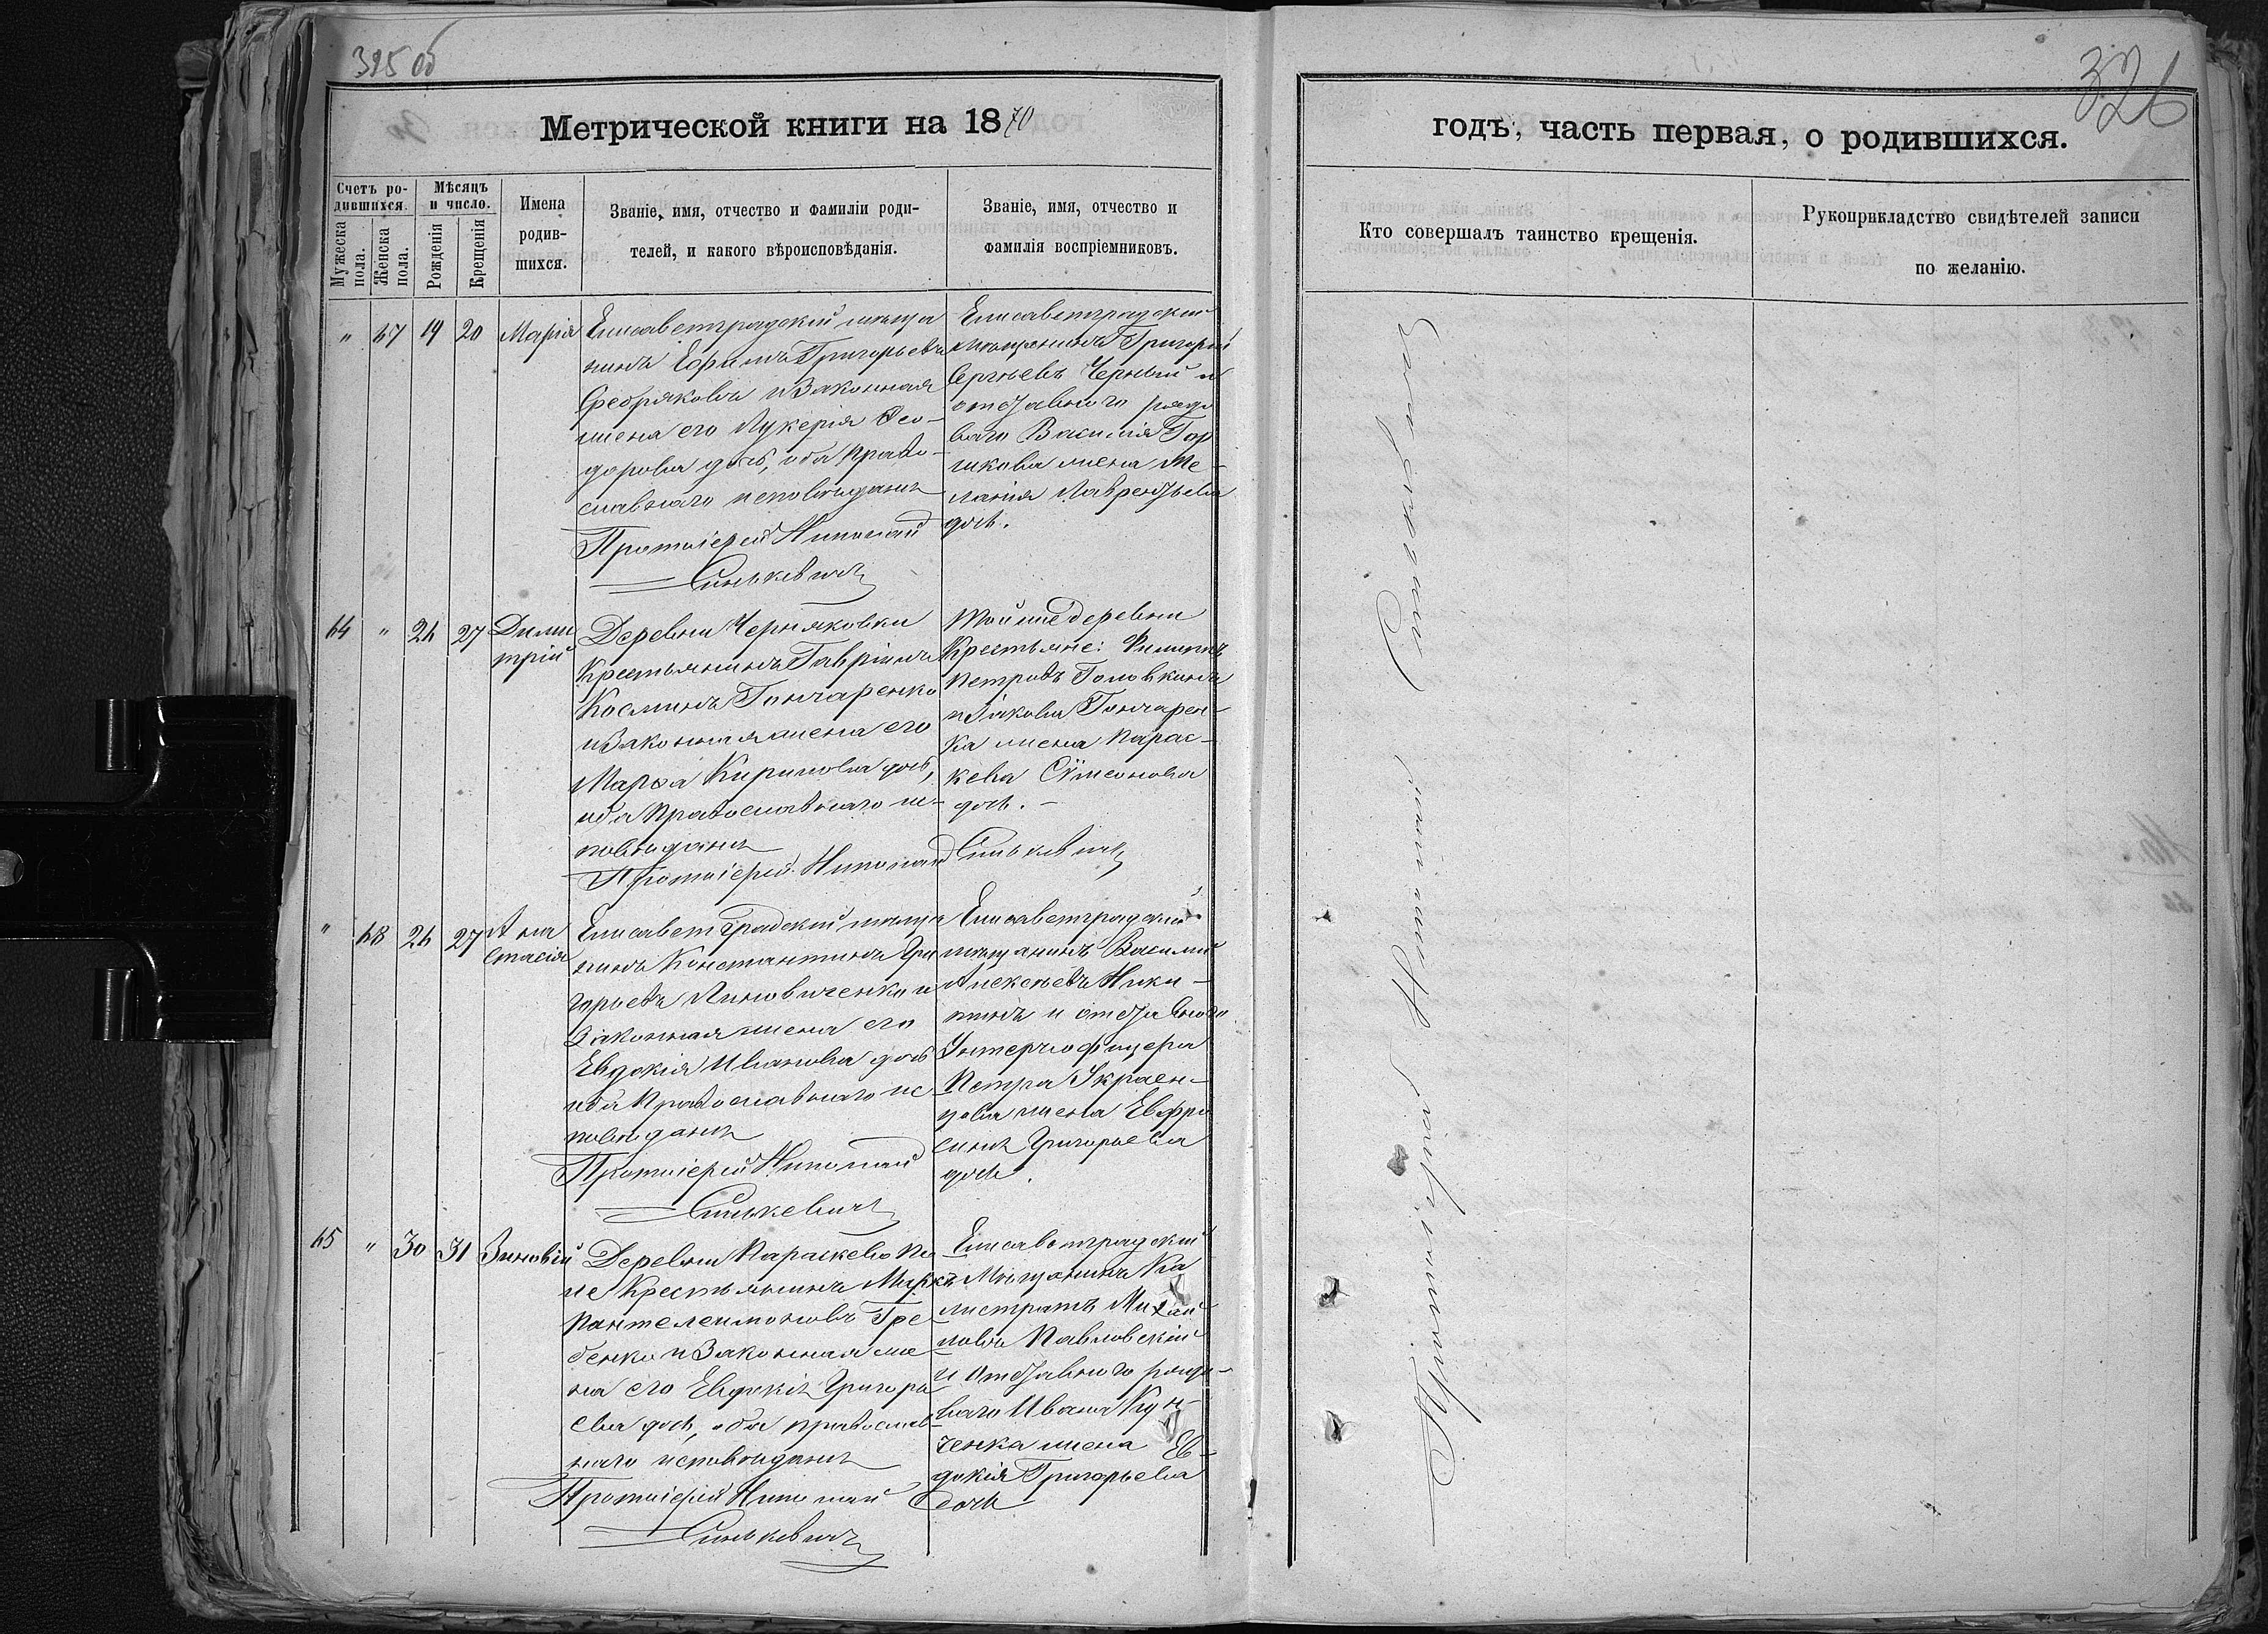 325 об
326
Метрической книги на 1870
годъ, часть первая, о родившихся.
Счетъ ро-
дившихся.
Мужеска пола.
Женска пола.
Мѣсяцъ
и число.
Рожденія
Крещенія
Имена
родив-
шихся.
Званіе, имя, отчество и фамиліи роди-
телей, и какого вѣроисповѣданія.
Званіе, имя, отчество и
фамилія воспріемниковъ.
Кто совершалъ таинство крещенія.
Рукоприкладство свидѣтелей записи
по желанію.
" 67 19 20 Марія
Елисаветградскій мѣща
нинъ Ефимъ Григорьевъ
и Законная
жена его Лукерія Ѳео-
дорова дочь, оба право-
славнаго исповѣданія
Протоіерей Николай
Синькевичъ
Елисаветградскій
мѣщанинъ Григорій
Сергѣевъ Черный и
отставного рядо
ваго Василія Гор
шкова жена Ме-
ланія Лаврентьева
дочь.
64 " 26 27 Дими
трій
Деревни Черняковки
Крестьянинъ Гавріилъ
Косминъ Гончаренко
и Законная жена его
Марѳа Кирилова дочь,
оба Православнаго ис-
повѣданія
Протоіерей Николай Синькевичъ
Той же деревни
Крестьяне: Филиппъ
Петровъ Головкинъ
и Іакова Гончарен-
ка жена Парас-
кева Сѵмеонова
дочь. -
" 68 26 27 Ана
стасія
Елисаветградскій мѣща
нинъ Константинъ Гри
горьевъ Линовиченко и
Законная жена его
Евдокія Иванова дочь
оба Православнаго ис-
повѣданія
Протоіерей Николай
Синькевичъ
Елисаветградскій
мѣщанинъ Василій
Алексѣевъ Ники-
тинъ и отставного
Унтеръ офицера
Петра Украен-
цева жена Евфро
синія Григорьева
дочь.
65 " 30 31 Зиновій
Деревни Параскево По
ле Крестьянинъ Маркъ
Пантелеимоновъ Гре-
бенко и Законная же-
на его Евдокія Григорь
ева дочь, оба православ-
наго исповѣданія
Протоіерей Николай
Синькевичъ
Елисаветградскій
Мѣщанинъ Ка
листратъ Михай
ловъ Павловскій
и отставного рядо-
ваго Ивана Кун-
ченка жена Ев-
докія Григорьева
дочь
Протоіерей Николай Синькевичъ